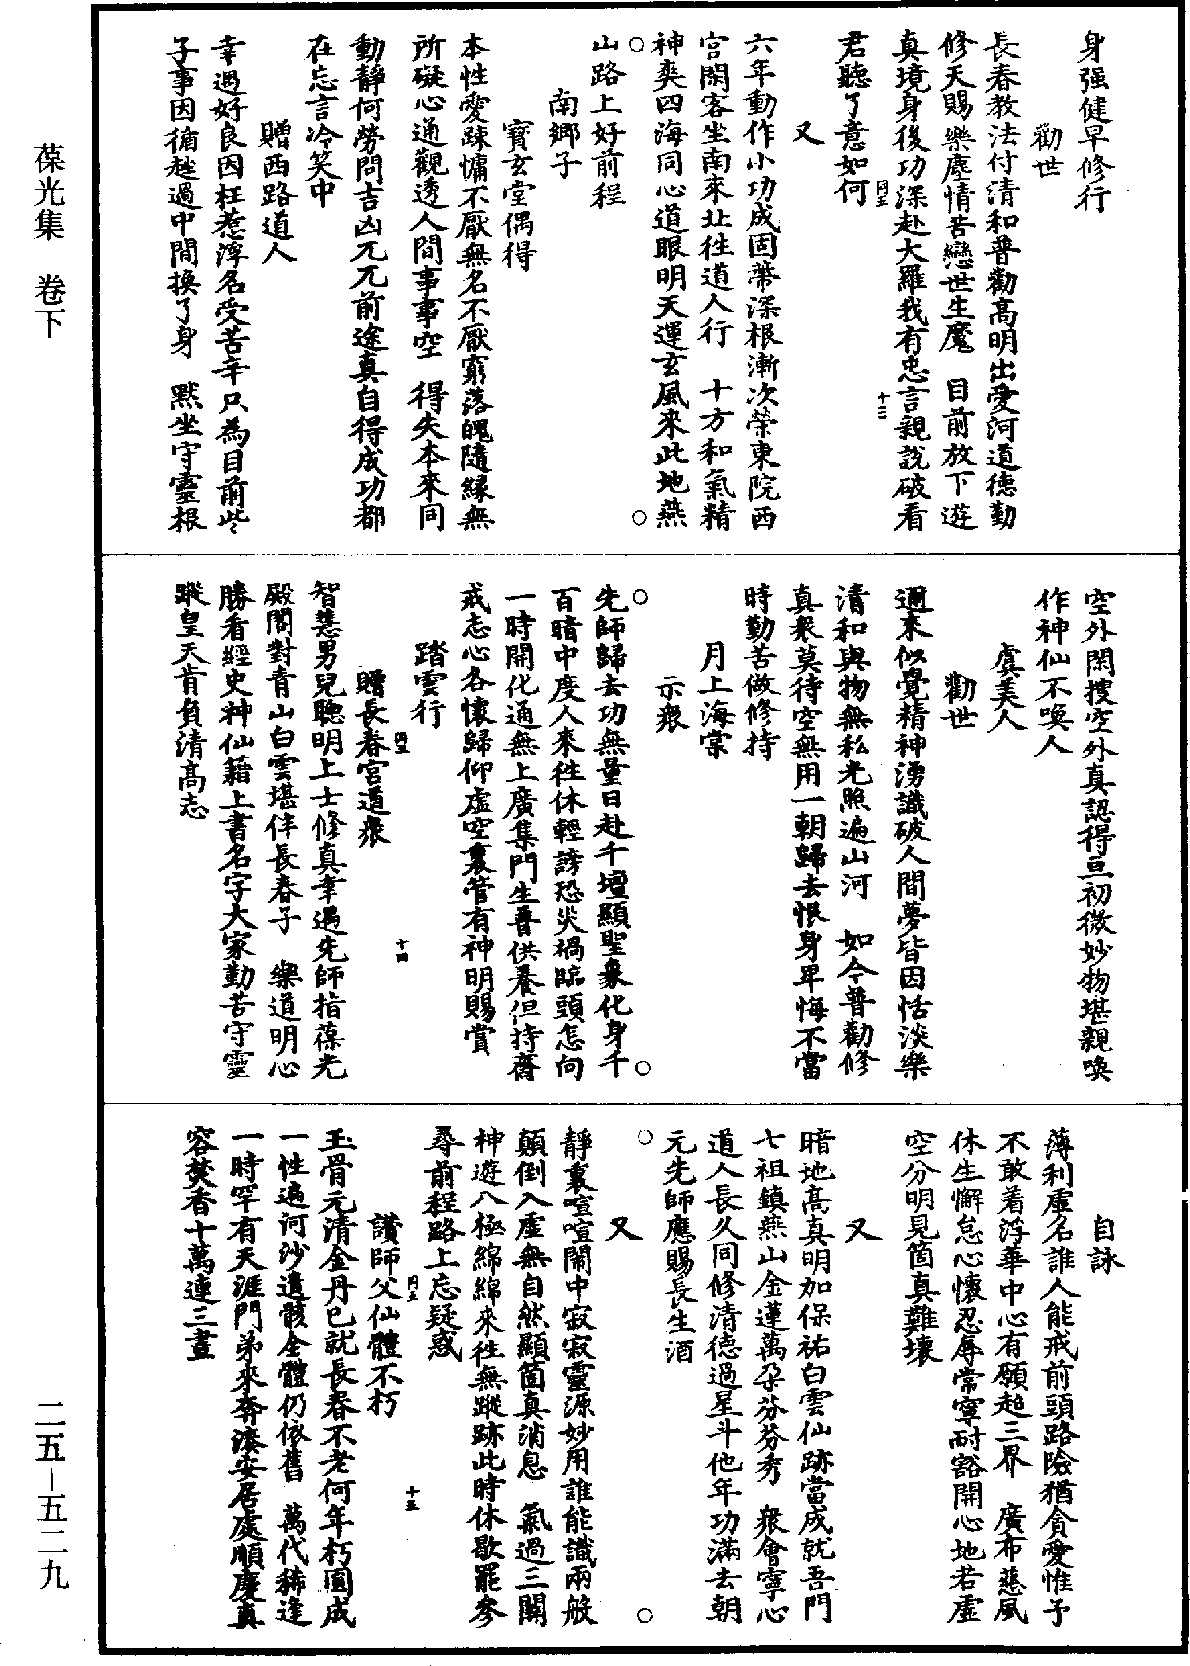 身强健早修行
勸世
長春教法付清和普勸高明出愛河道德勤
修天賜樂塵情苦戀世生魔　目前放下遊
真境身後功深赴大羅我有忠言親說破看
君聽了意如何
又
六年動作小功成固蔕深根漸次榮東院西
宫閑客坐南來北徃道人行　十方和氣精
神爽四海同心道眼明天運玄風來此地燕
山路上好前程
南鄉子
寳玄堂偶得
本性愛踈慵不厭無名不厭窮落魄隨縁無
所礙心通觀透人間事事空　得失本來同
動靜何勞問吉凶兀兀前途真自得成功都
在忘言冷笑中
贈西路道人
幸遇好良因枉惹浮名受苦辛只為目前些
子事因循越過中間換了身　黙坐守靈根
空外閑搜空外真認得亘初微妙物堪親喚
作神仙不喚人
虞美人
勸世
邇來似覺精神湧識破人間夢皆因恬淡樂
清和與物無私光照遍山河　如今普勸修
真衆莫待空無用一朝歸去恨身早悔不當
時勤苦做修持
月上海棠
示衆
先師歸去功無量日赴千壇顯聖象化身千
百暗中度人來徃休輕謗恐災禍臨頭怎向
一時開化通無上廣集門生普供養但持齋
戒志心各懷歸仰虚空裏管有神明賜賞
踏雲行
贈長春宫道衆
智慧男兒聰明上士修真幸遇先師指葆光
殿閣對青山白雲堪伴長春子　樂道明心
勝看經史神仙籍上書名字大家勤苦守靈
蹤皇天肯負清高志
自詠
薄利虚名誰人能戒前頭路險猶貪愛惟予
不敢着浮華中心有願超三界　廣布慈風
休生懈怠心懷忍辱常寧耐豁開心地若虚
空分明見箇真難壊
又
暗地高真明加保祐白雲仙跡當成就吾門
七祖鎮燕山金蓮萬朶芬芬秀　衆會寧心
道人長久同修清德過星斗他年功滿去朝
元先師應賜長生酒
又
靜裏喧喧鬧中寂寂靈源妙用誰能識兩般
顛倒入虚無自然顯箇真消息　氣過三關
神遊八極綿綿來徃無蹤跡此時休歇罷參
尋前程路上忘疑惑
讚師父仙體不朽
玉骨元清金丹已就長春不老何年朽圓成
一性遍河沙遺骸全體仍依舊　萬代稀逢
一時罕有天涯門弟來奔湊安居處順慶真
容焚香十萬連三晝
葆光集　卷下
二五—五二九